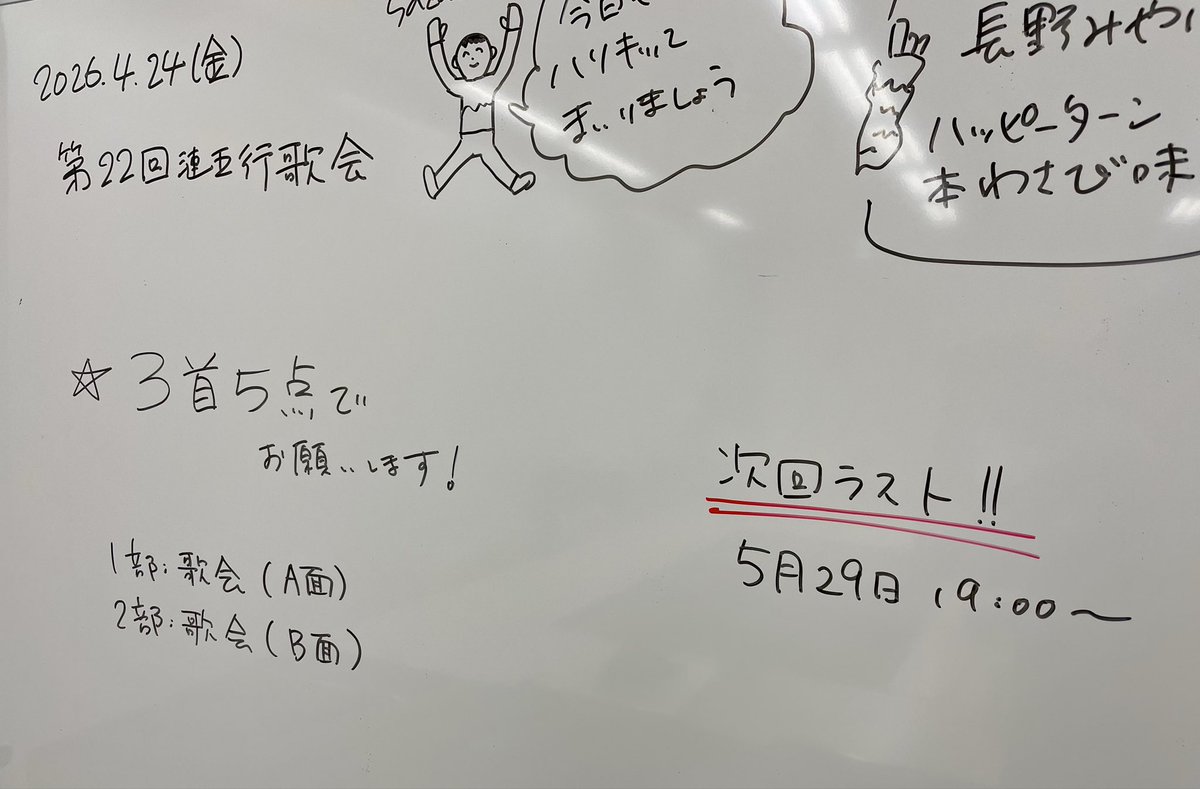 2026.4.24(金)
第22回漣五行歌会
今日も
ハリキッて
まいりましょう
長野みやげ
ハッピーターン
本わさび味
☆3首5点で
お願いします!
1部:歌会(A面)
2部:歌会(B面)
次回ラスト!!
5月29日 19:00〜